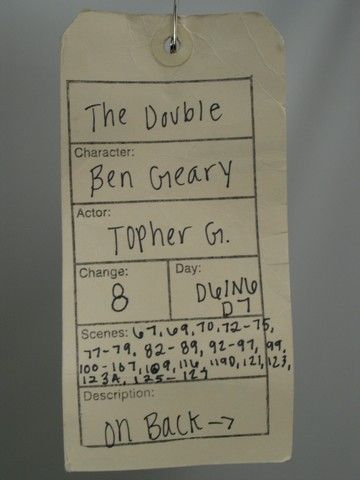 The Double
Character:
Ben Geary
Actor:
Topher G.
Change:
8
Day:
D6/N6
D7
Scenes: 67, 69, 70, 72-75,
77-79, 82-89, 92-97, 99,
100-107, 109, 116, 119D, 121, 123,
123A, 125-127
Description:
on Back →